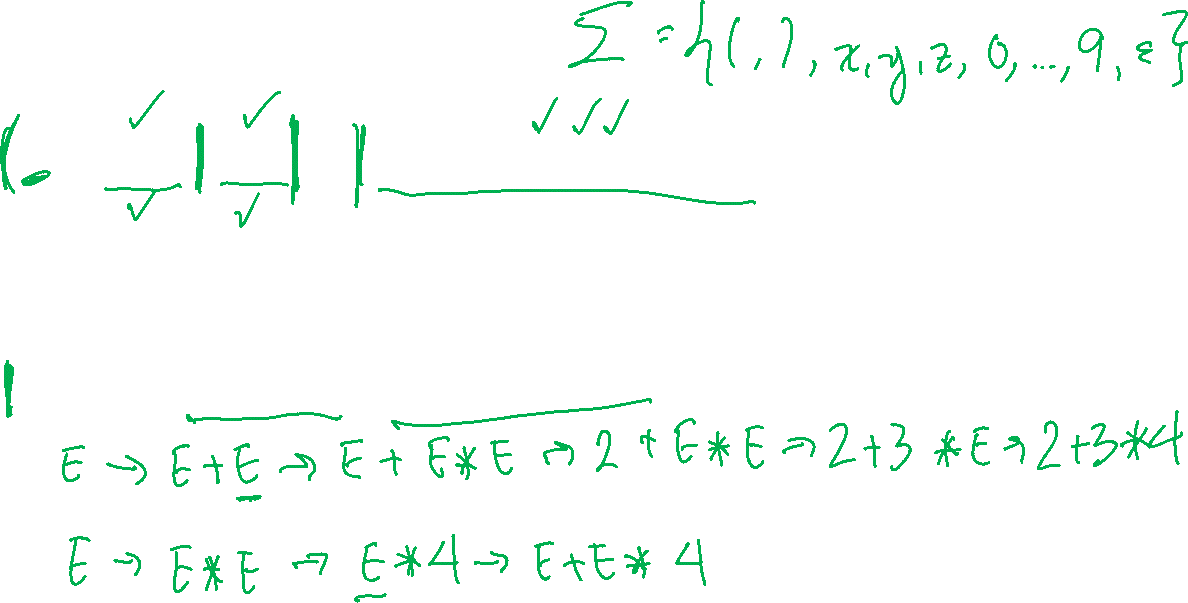 Σ = {(, ), x, y, z, 0, ..., 9, ε}
( . ✓ | ✓ | | ✓ ✓ ✓
✓ ✓
E → E + E → E + E * E → 2 + E * E → 2 + 3 * E → 2 + 3 * 4
E → E * E → E * 4 → E + E * 4